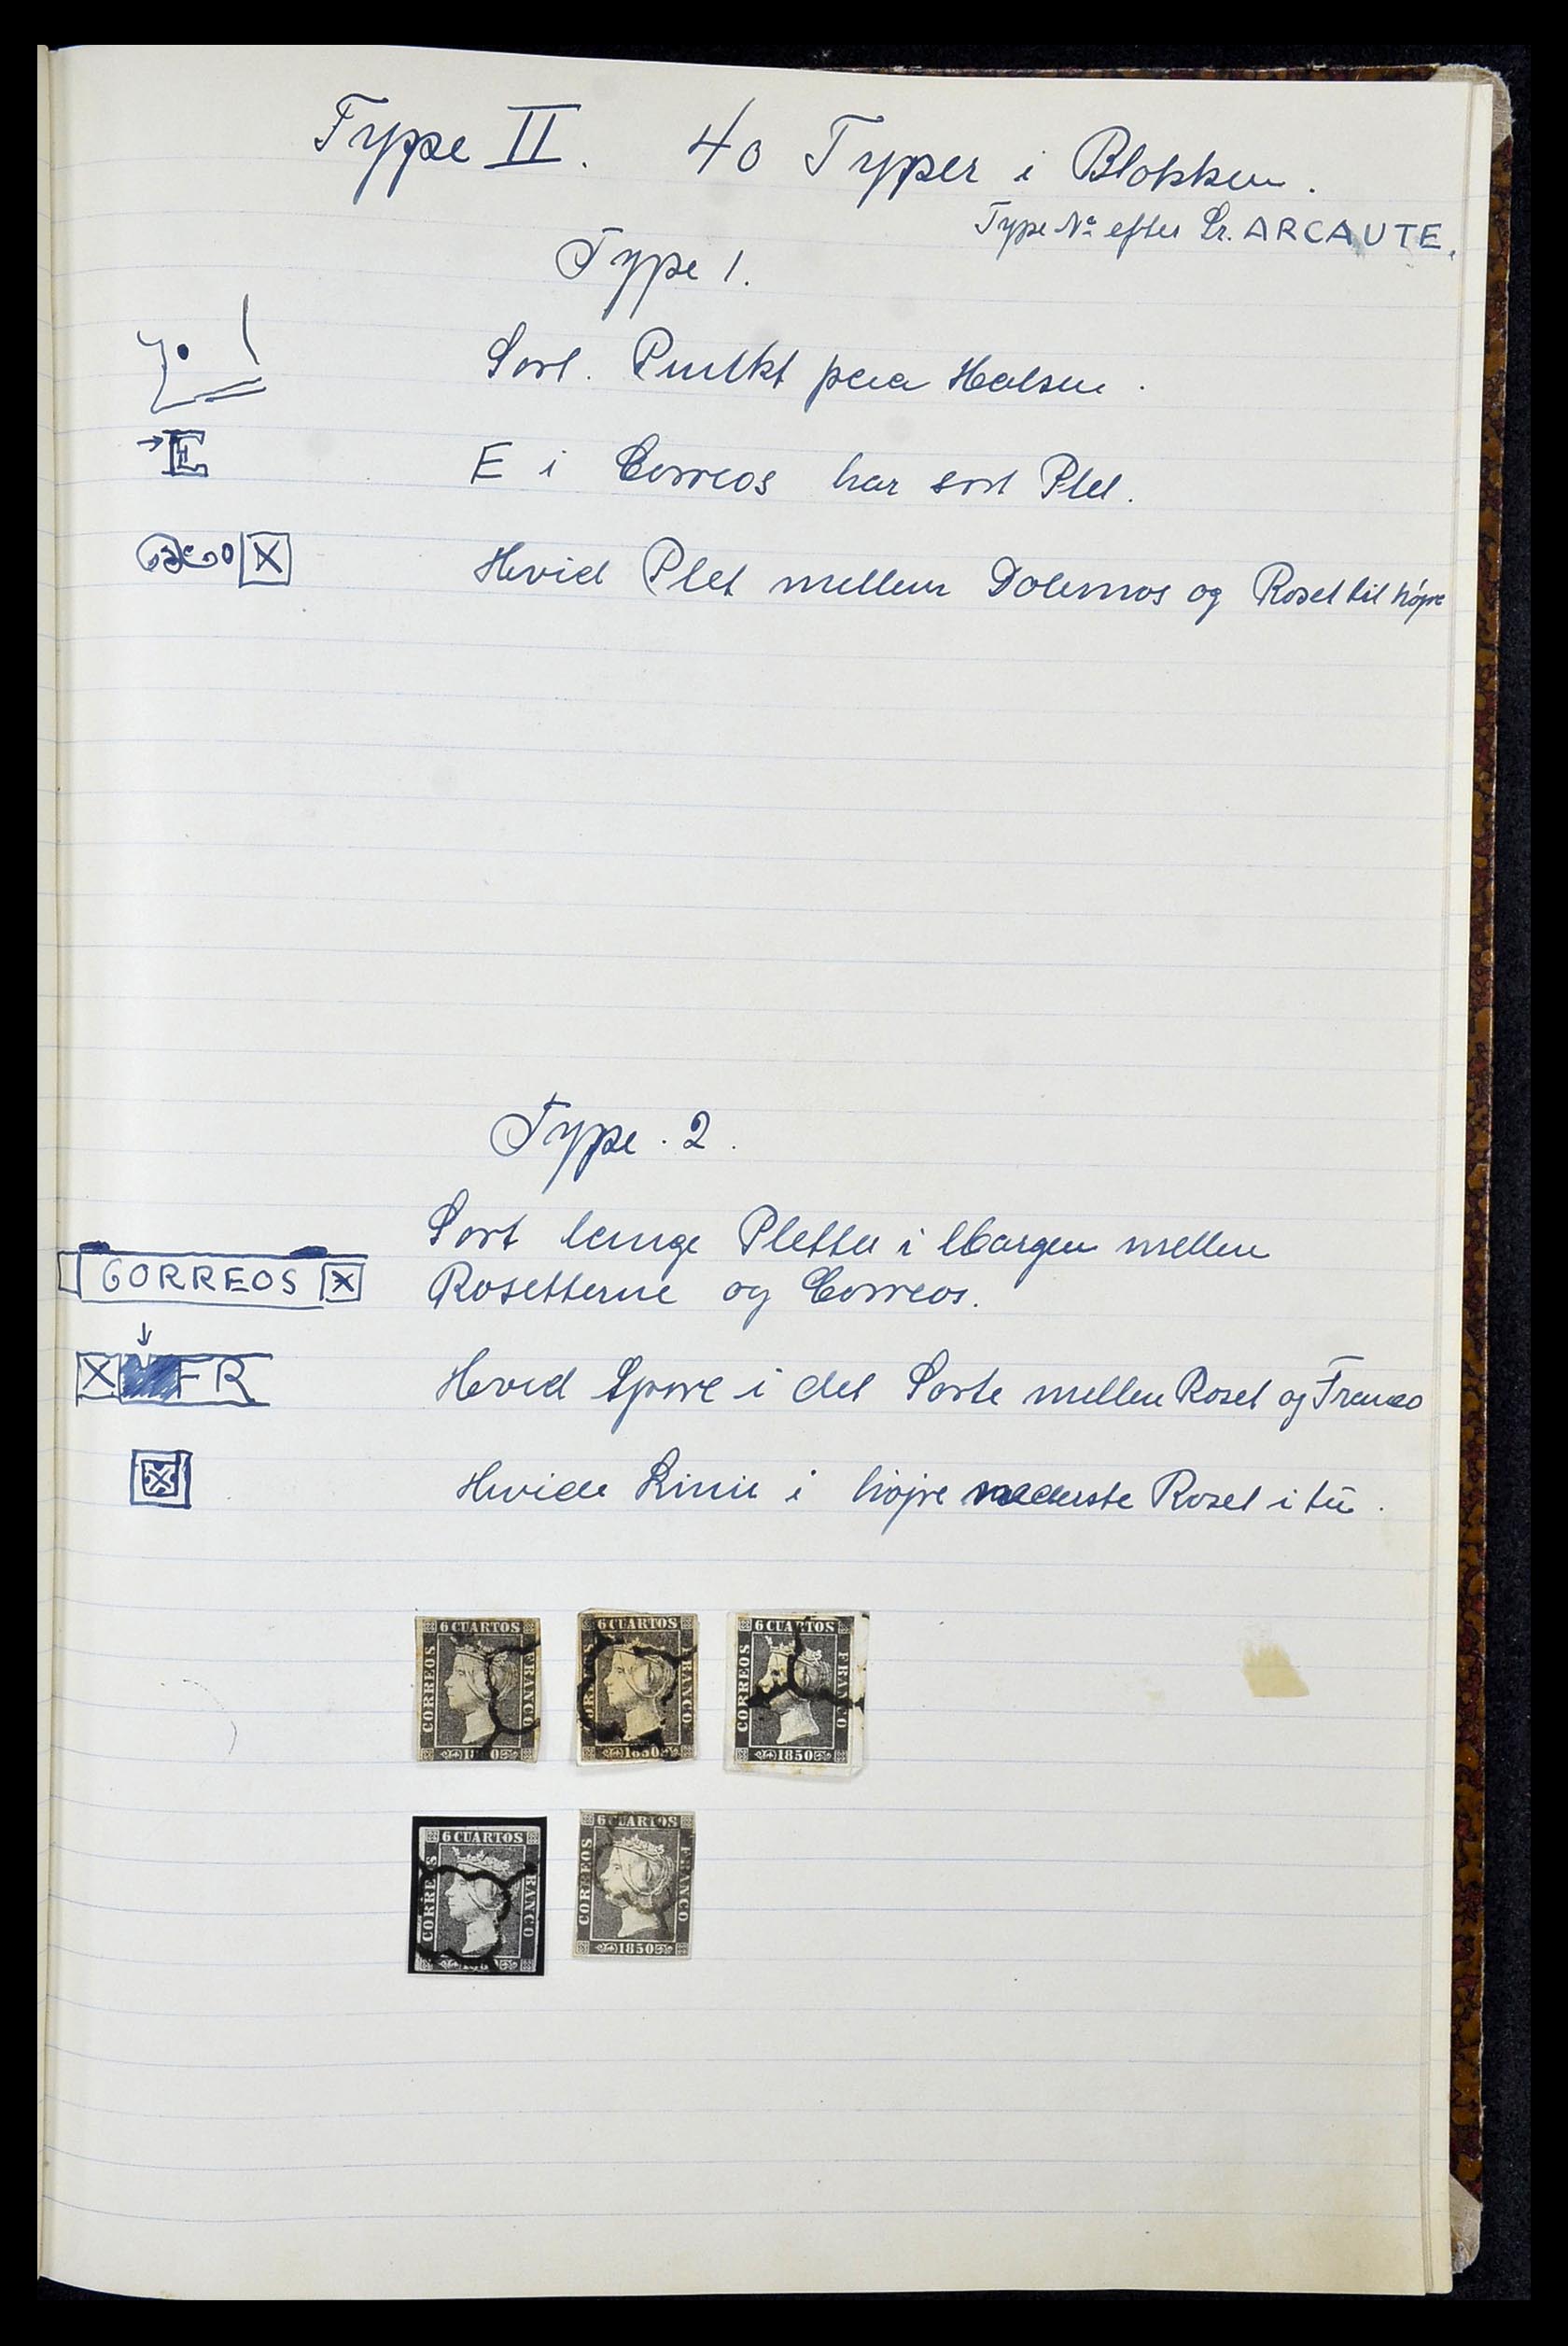 Type II. 40 Typer i Blokken.
Type No efter Sr. ARCAUTE.
Type 1.
Sort. Punkt paa Halsen.
E
E i Correos har sort Plet.
Hvid Plet mellem og Roset til højre
Type. 2.
Sort lange Pletter i Margen mellem
CORREOS
Rosetterne og Correos.
FR
Hvid Spore i det Sorte mellem Roset og Franco
Hvide Linie i højre nederste Roset itu.
6 CUARTOS
CORREOS
FRANCO
6 CUARTOS
FRANCO
1850
6 CUARTOS
CORREOS
FRANCO
1850
6 CUARTOS
CORREOS
FRANCO
6 CUARTOS
CORREOS
FRANCO
1850